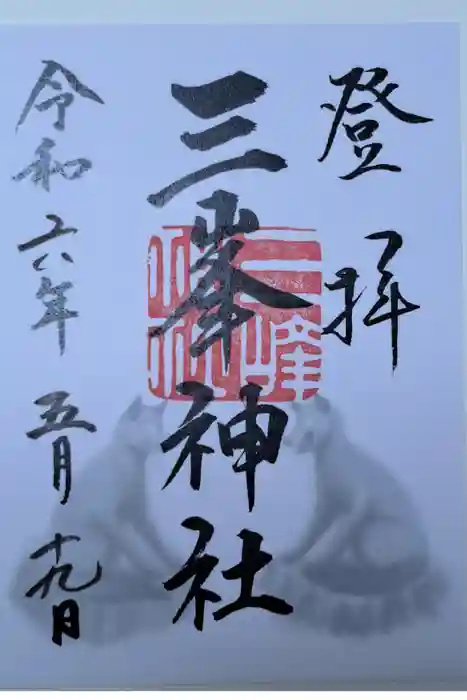 登拝
三峯神社
令和六年 五月 十九日